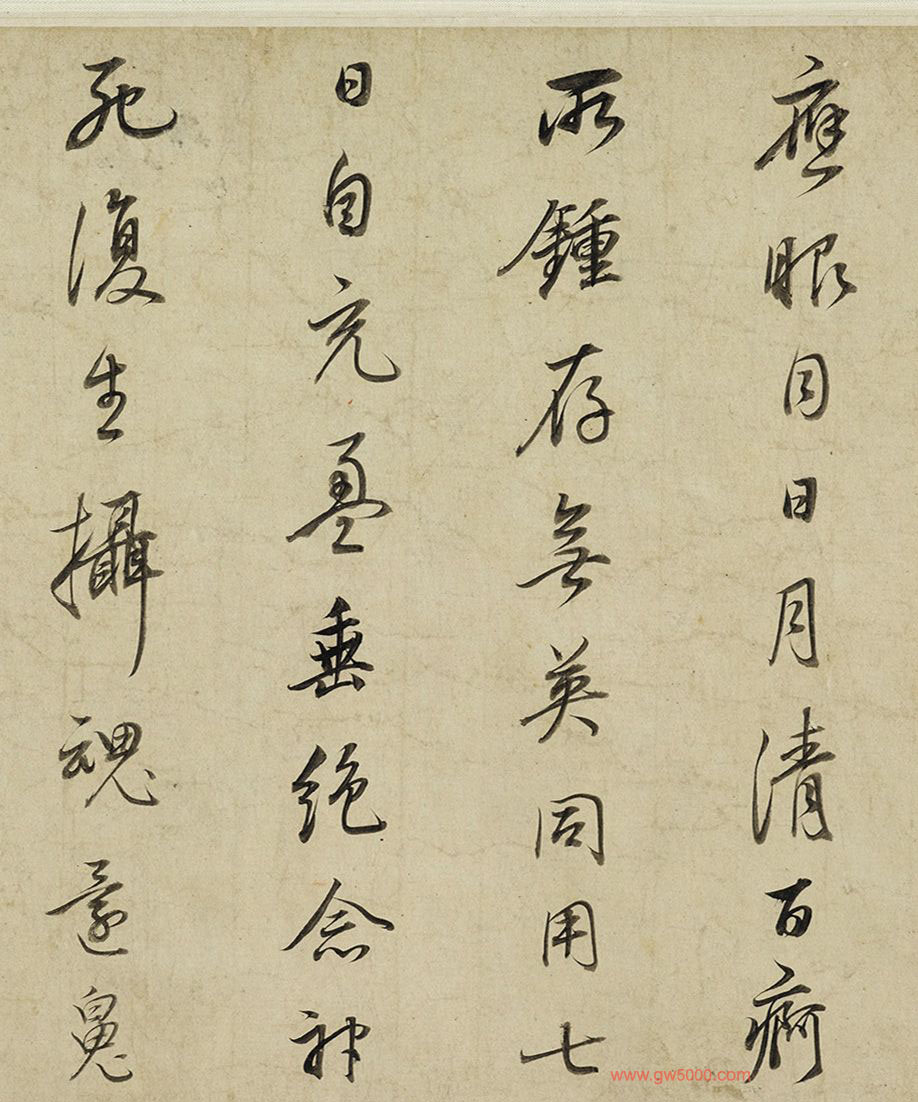 應眼目日月清百痾
所鍾存無英同用七
日自充盈垂絕念神
死復生攝魂還魄
www.gw5000.com